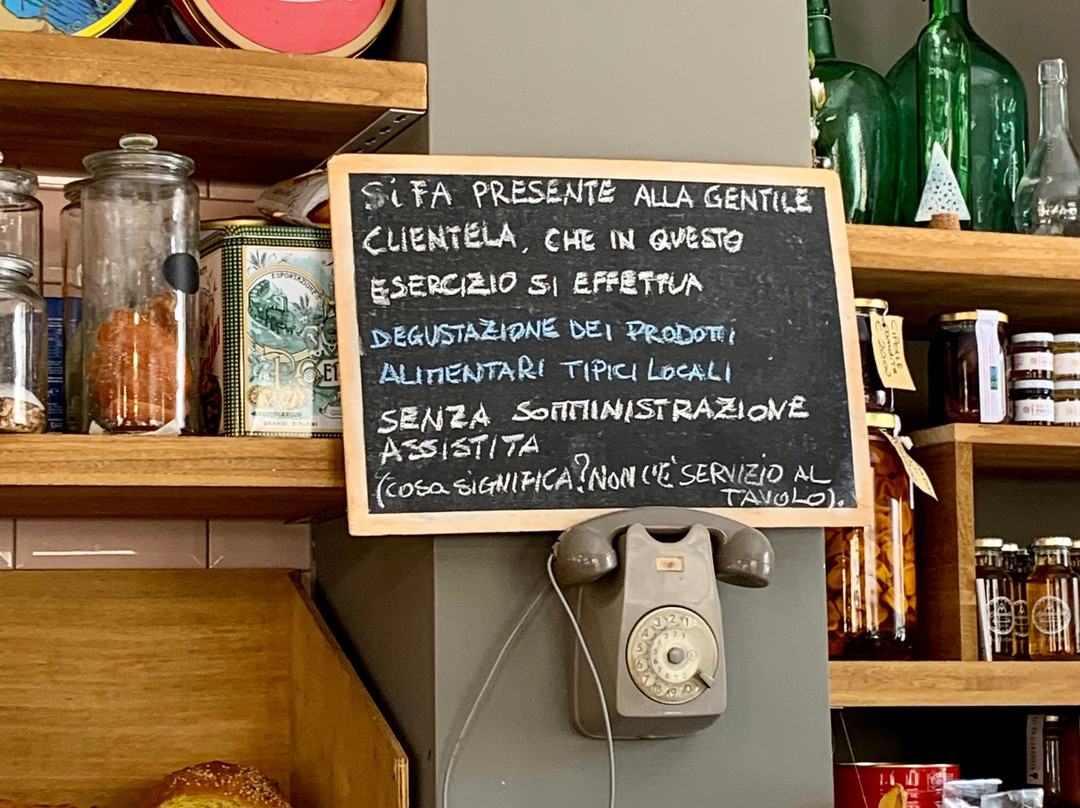 Si FA PRESENTE ALLA GENTILE
CLIENTELA, CHE IN QUESTO
ESERCIZIO SI EFFETTUA
DEGUSTAZIONE DEI PRODOTTI
ALIMENTARI TIPICI LOCALI
SENZA SOMMINISTRAZIONE
ASSISTITA
(COSA SIGNIFICA? NON C'È SERVIZIO AL
TAVOLO).
ESPORTAZIONE